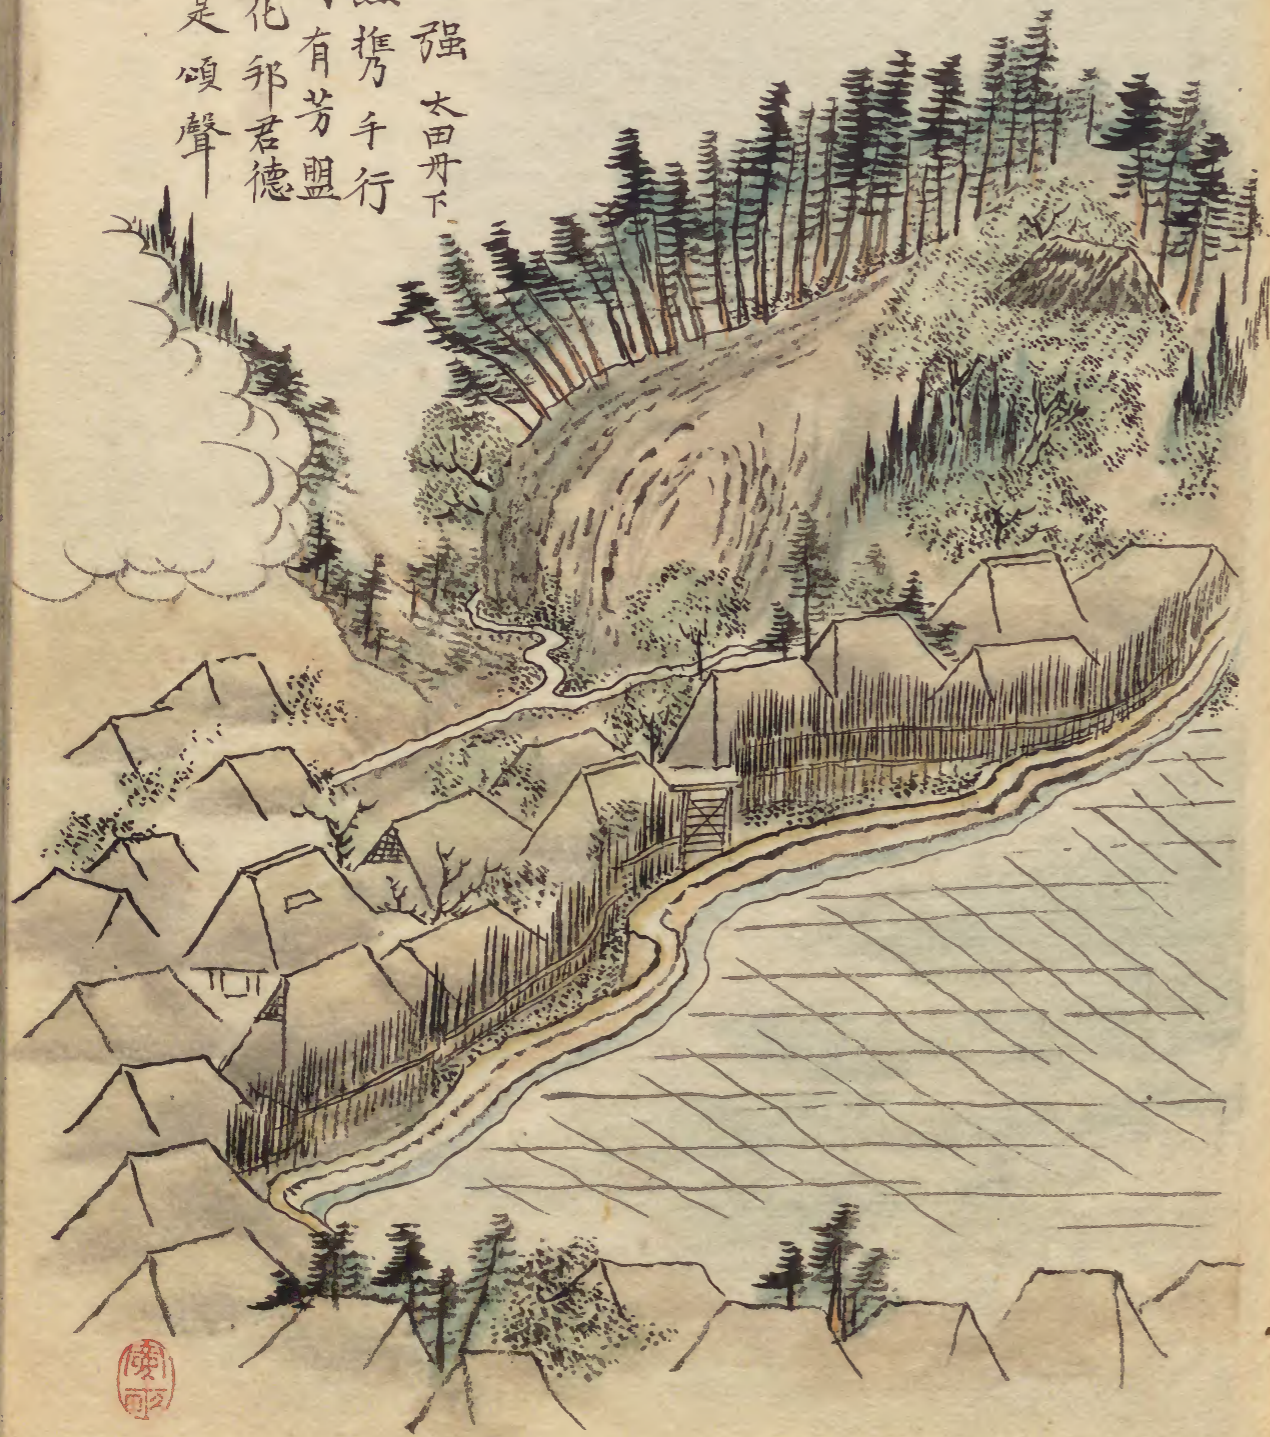 强 太田丹下
携手行
有芳盟
化邦君德
是頌聲